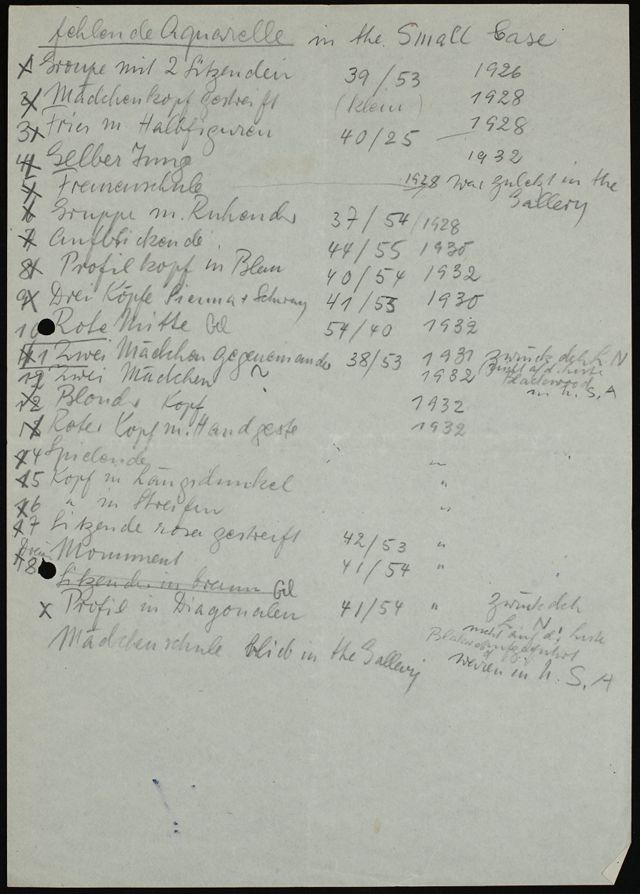 fehlende Aquarelle in the Small Case
1 Gruppe mit 2 Sitzenden 39/53 1926
2 Mädchenkopf gestreift (klein) 1928
3 Fries m Halbfiguren 40/25 — 1928
4 Gelber Jung 1932
Frauenschule 1928 war zuletzt in the Gallery
6 Gruppe m. Ruhender 37/54/1928
7 Aufblickende 44/55 1930
8 Profilkopf in Blau 40/54 1932
9 Drei Köpfe Sienna + Schwarz 41/53 1930
10 Rote Mitte 54/40 1932
11 Zwei Mädchen gegeneinander 38/53 1931 zurück dch L N
12 Zwei Mädchen ~ 1932 nicht a/d. Liste
Blackwood
in U.S.A
12 Blonder Kopf 1932
Roter Kopf m. Handgeste 1932
14 Spielende "
15 Kopf in Längsdunkel "
16 " in Streifen "
17 Sitzende rosa gestreift 42/53 "
Monument 41/54 "
18 Sitzende in braun
x Profil in Diagonalen 41/54 " zurück dch
L. N.
nicht auf d. Liste
Mädchenschule blieb in the Gallery
waren in U.S.A